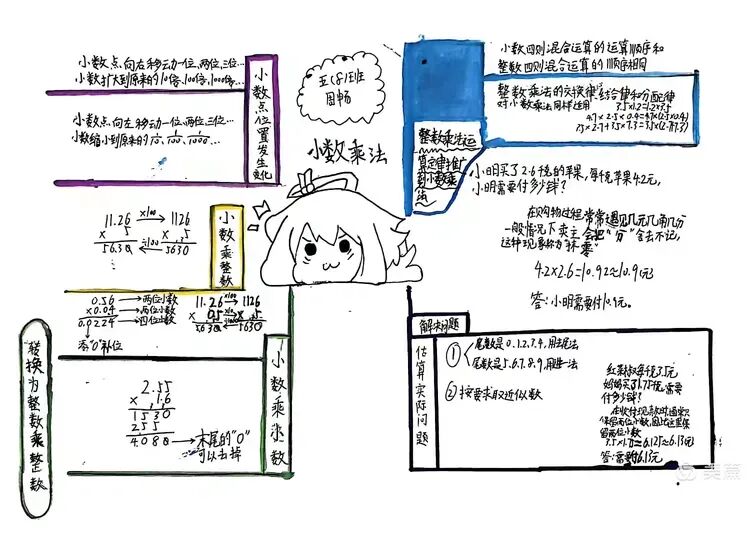 五(8)班
周畅
小数乘法
小数点位置发生变化
小数点向左移动一位,两位,三位…
小数扩大到原来的10倍、100倍、1000倍…
小数点,向左移动一位,两位,三位…
小数缩小到原来的1/10、1/100、1/1000…
小数乘整数
11.26 ×100→ 1126
× 5 × .5
56.30 ←÷100 5630
0.56 →两位小数
× 0.04 →两位小数
0.0224 →四位小数
添"0"补位
11.26 ×100→ 1126
× 0.5 × .5
5.630 5630
转换为整数乘整数
小数乘小数
2.55
× 1.6
1530
255
4.080 → 末尾的"0"
可以去掉
小数四则混合运算的运算顺序和
整数四则混合运算的顺序相同
整数乘法运
算定律推广
到小数乘
法
整数乘法的交换律,结合律和分配律
对小数乘法同样适用
3.5×1.2=1.2×3.5
小明买了2.6千克的苹果,每千克苹果4.2元,
小明需要付多少钱?
在购物过程常常遇见几元几角几分
一般情况下卖主会把"分"舍去不记,
这种现象称为"抹零"
4.2×2.6=10.92≈10.9(元)
答:小明需要付10.9元。
解决问题
估算实际问题
① 尾数是0.1.2.3.4,用去尾法
尾数是5.6.7.8.9,用进一法
②按要求取近似数
红菜椒每千克3.5元
妈妈买了1.75千克,需要
付多少钱?
在收付现款时,通常只
保留两位小数,因此这里保
留两位小数
答:需要付6.13元
美篇